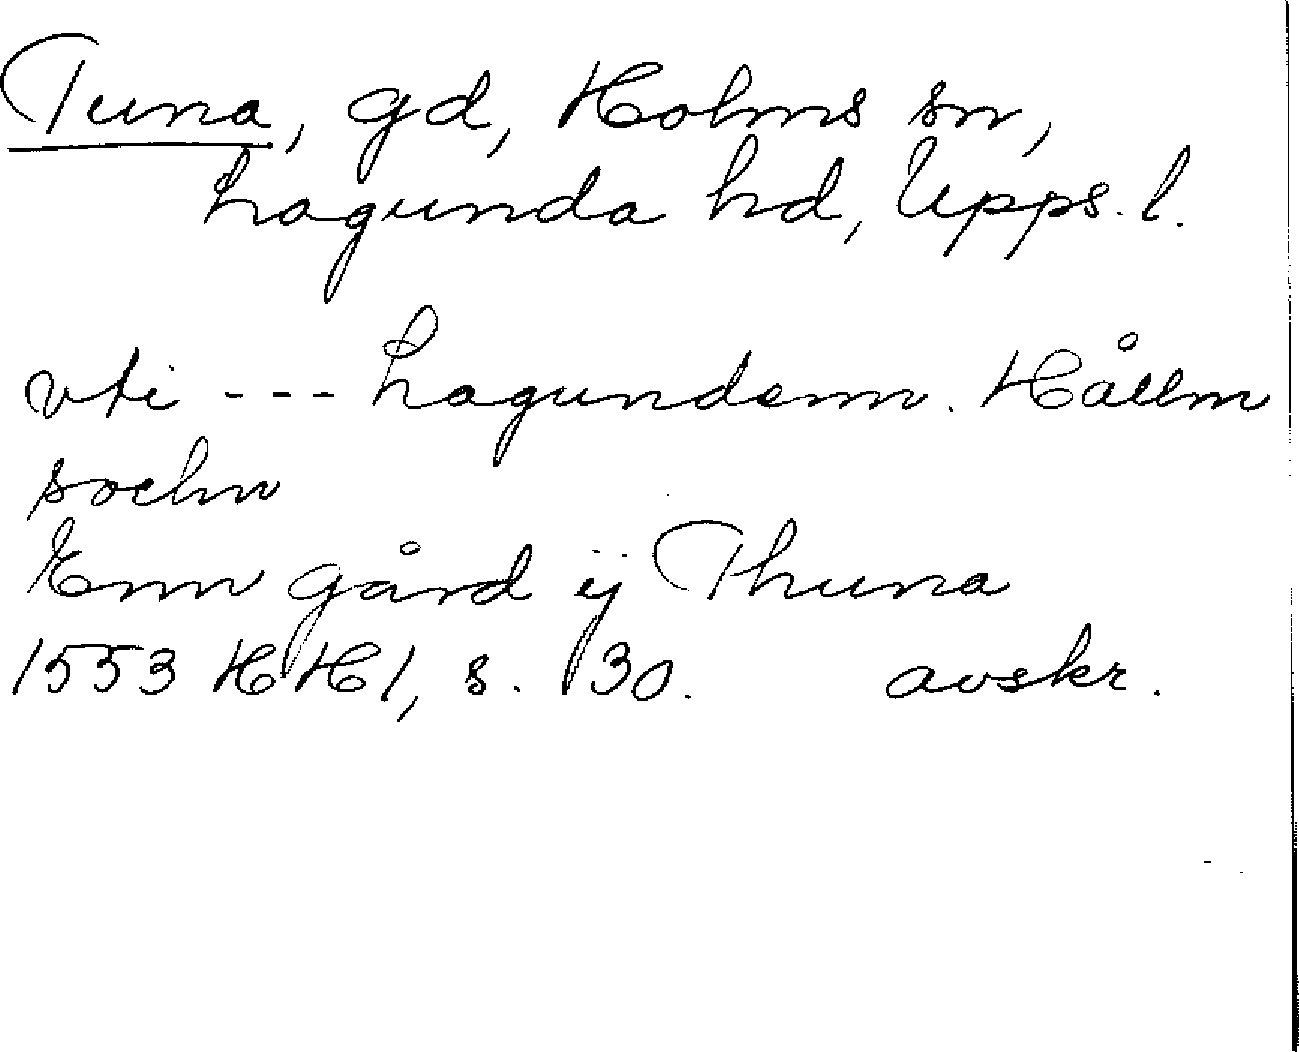 Tuna, gd, Holms sn,
Lagunda hd, Upps. l.
vti --- Lagundenn. Hållm
sochn
Enn gård ÿ Thuna
1553 HH1, s. 30. avskr.